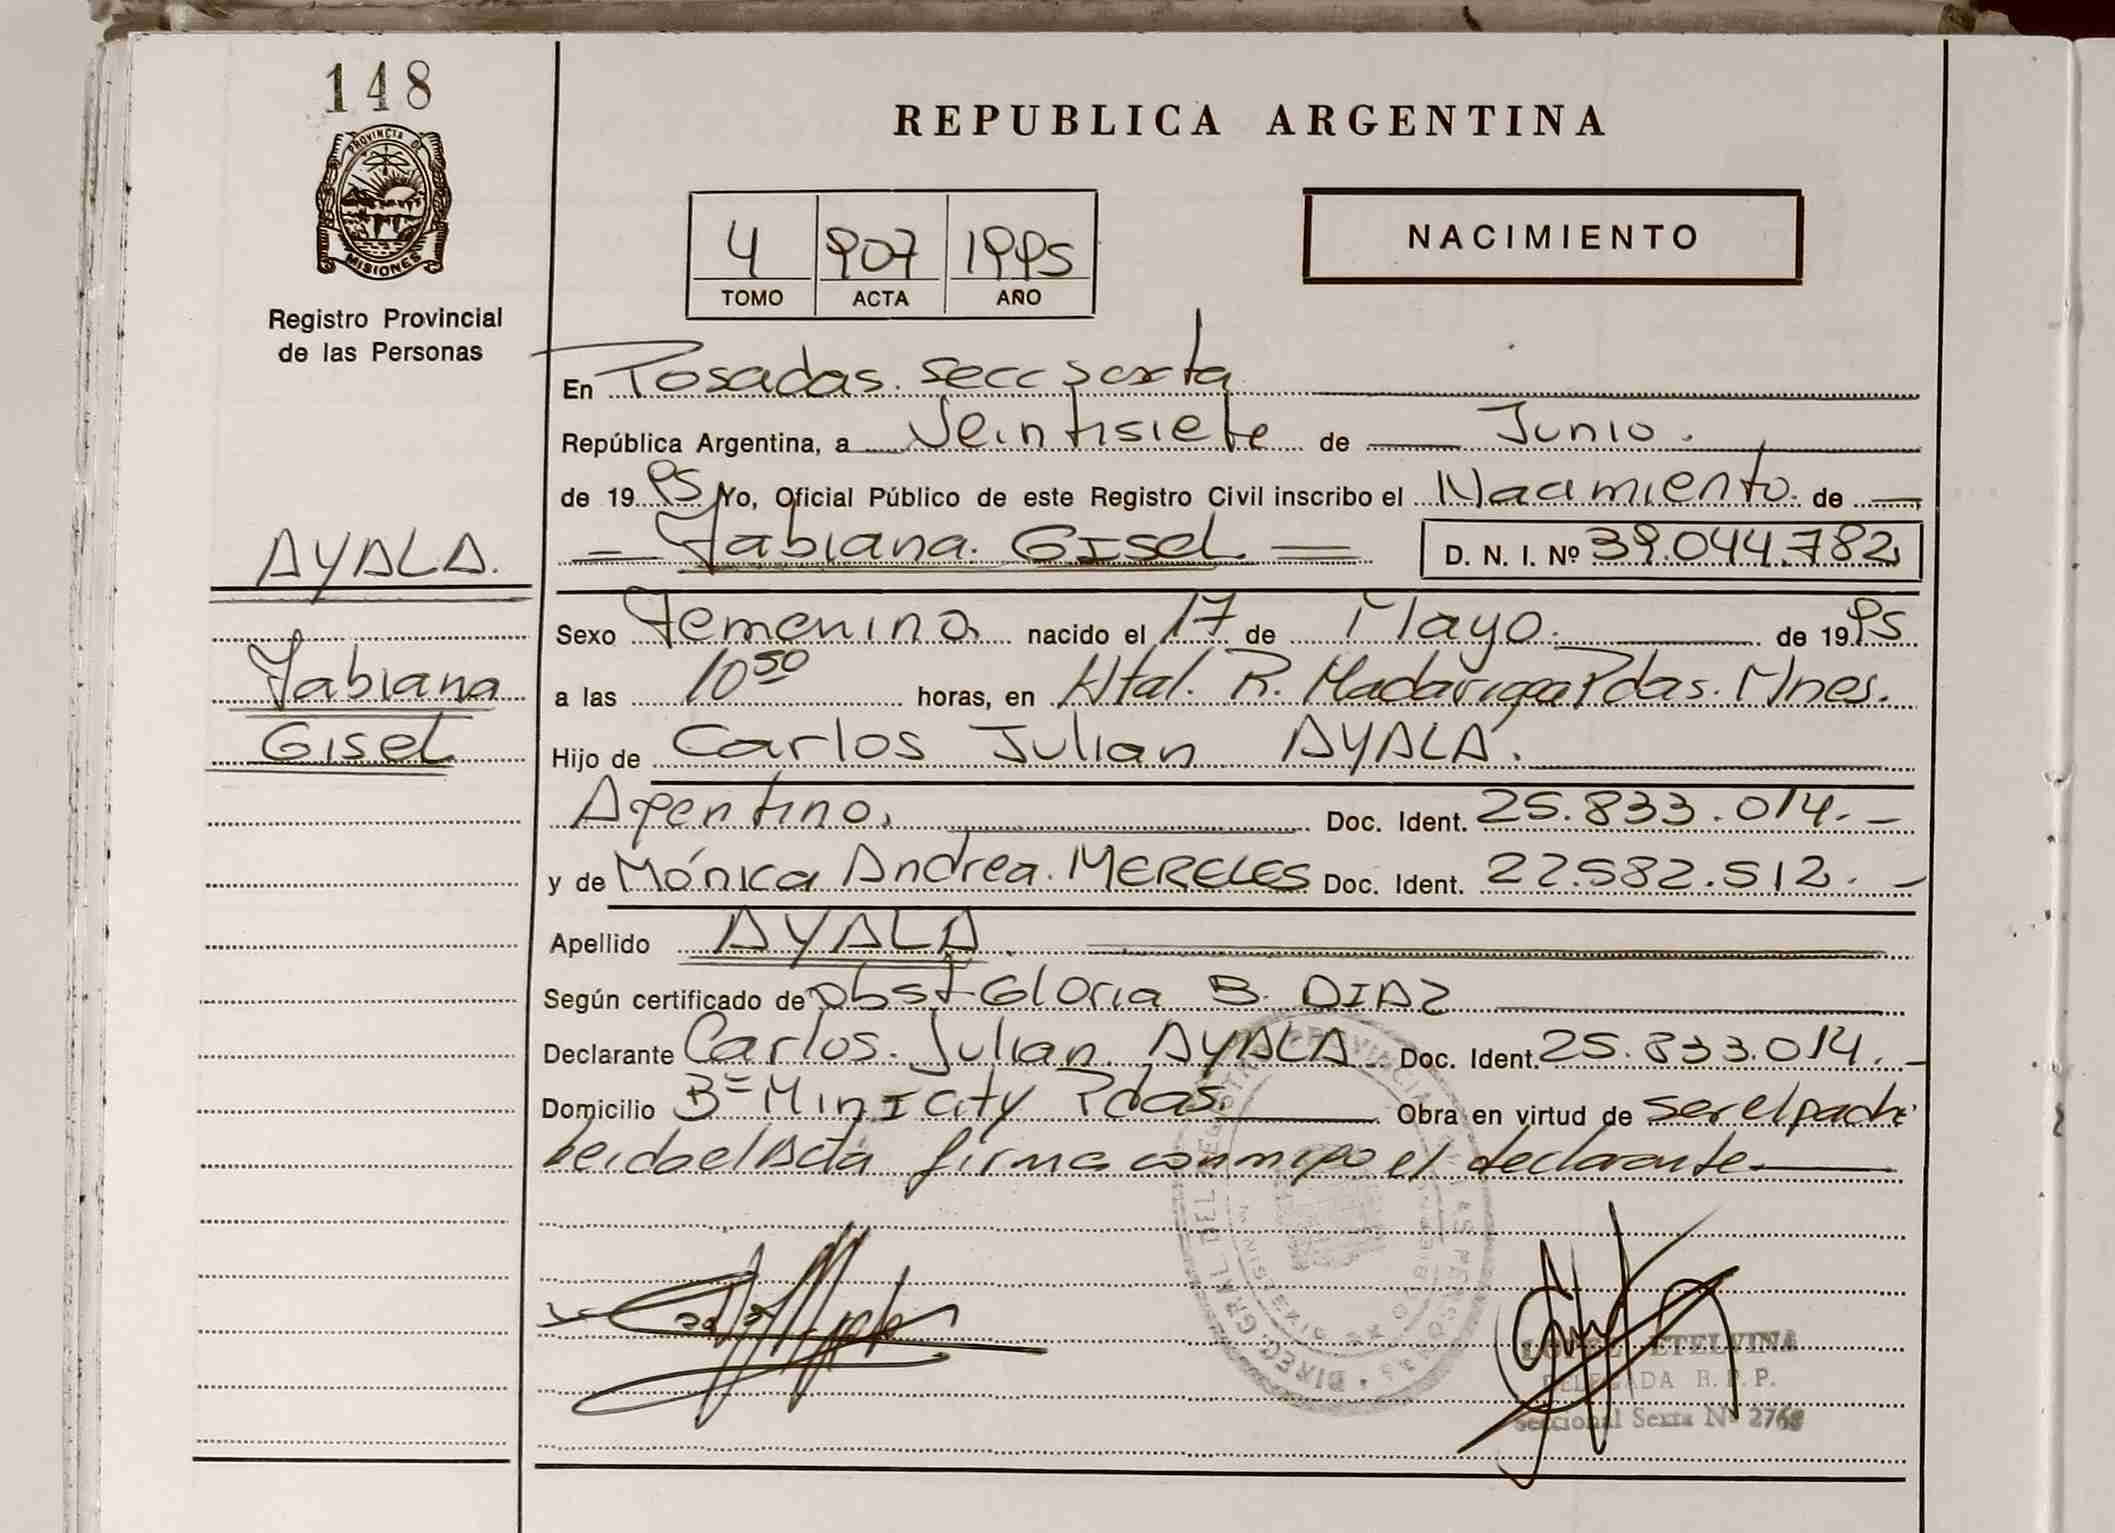 148
PROVINCIA DE
MISIONES
Registro Provincial
de las Personas
AYALA.
Fabiana
Gisel
REPUBLICA ARGENTINA
4 907 1995
TOMO ACTA AÑO
NACIMIENTO
En Posadas. Secc Sexta
República Argentina, a Veintisiete de Junio.
de 1995 Yo, Oficial Público de este Registro Civil inscribo el Nacimiento. de
Fabiana. Gisel D. N. I. Nº 39.044.782
Sexo Femenino, nacido el 17 de Mayo. de 1995
a las 10 50 horas, en Htal. R. Madariaga Pdas. Mnes.
Hijo de Carlos Julian AYALA.
Argentino, Doc. Ident. 25.833.014.-
y de Mónica Andrea. MERELES Doc. Ident. 22.582.512.-
Apellido AYALA
Según certificado de Obst Gloria B. DIAZ
Declarante Carlos. Julian AYALA Doc. Ident. 25.833.014.-
Domicilio Bº Mini City Pdas. Obra en virtud de ser el padre
Leida el Acta firma conmigo el declarante
LOPEZ ETELVINA
DELEGADA R. P. P.
Seccional Sexta Nº 2768